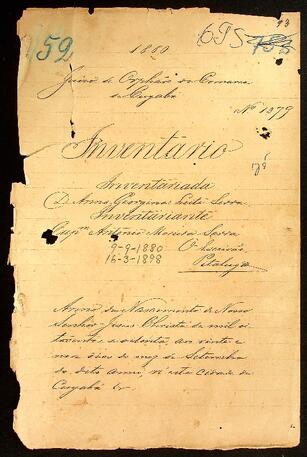 152
1880
13
6PS
Juiso de Orphãos da Comarca
de Cuyabá
Nº 1379
Inventário
Inventariada
D. Anna Georgina Leite Serra
Inventariante
Capᵐ Antonio Maria Serra
9-9-1880
16-3-1898
O Escrivão
Pitaluga
Anno do Nascimento de Nosso
Senhor Jesus Christo de mil oi
tocentos e oitenta aos vinte e
nove dias do mez de Setembro
do dito anno, n'esta cidade de
Cuyabá